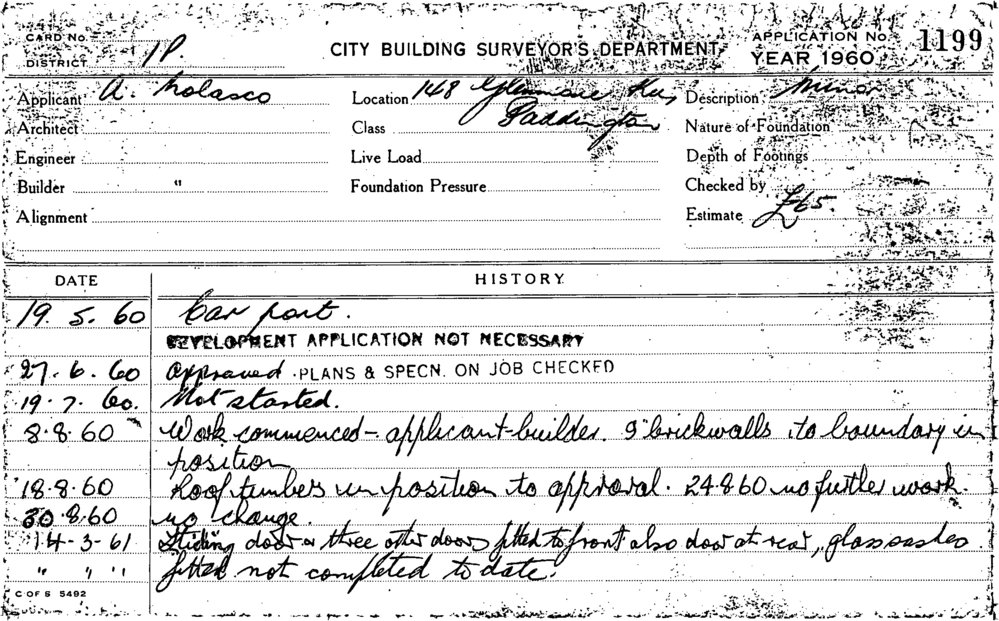 CARD No.
DISTRICT 1P
CITY BUILDING SURVEYOR'S DEPARTMENT
APPLICATION No. 1199
YEAR 1960
Applicant A. Nolasco
Location 148 Glenmore Ave, Paddington
Description Minor
Architect
Class
Nature of Foundation
Engineer
Live Load
Depth of Footings
Builder "
Foundation Pressure
Checked by
Alignment
Estimate £65.
DATE HISTORY
19. 5. 60 Car port.
DEVELOPMENT APPLICATION NOT NECESSARY
27. 6. 60 Approved PLANS & SPECN. ON JOB CHECKED
19. 7. 60. Not started.
8. 8. 60 Work commenced - applicant-builder. 9" brickwalls to boundary in
position
18. 8. 60 Roof timbers in position to approval. 24 8 60 no further work.
30. 8. 60 no change.
14-3-61 Sliding door & three other doors fitted to front also door at rear, glass sashes
" " " fitted not completed to date.
C OF S 5492